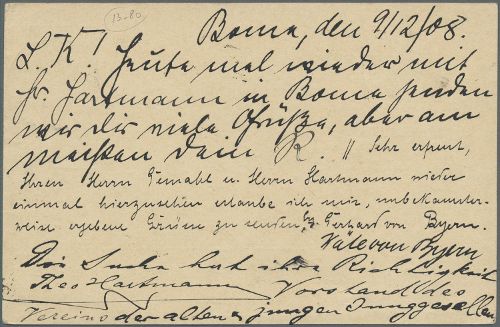 13-80
Boma, den 9/12/08.
L. K.! Heute mal wieder mit
Hr. Hartmann in Boma senden
wir dir viele Grüße, aber am
meisten dein R. // Sehr erfreut,
Ihren Herrn Gemahl u. Herrn Hartmann wieder
einmal hierzusehen erlaube ich mir, unbekannter-
weise ergebene Grüße zu senden, Gerhard von Byern.
Käte von Byern
Die Sache hat ihre Richtigkeit
Theo Hartmann Vorstand des
Vereins der alten u jungen Junggesellen